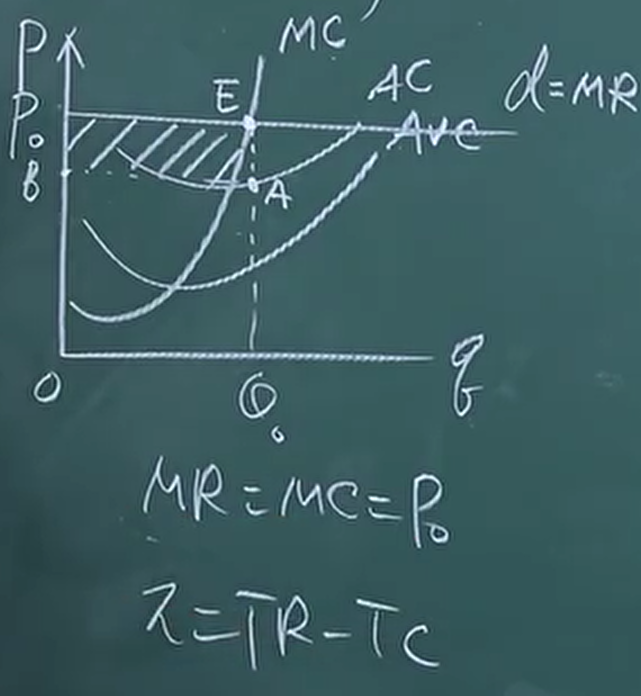 P
MC
AC
d=MR
E
P₀
AVC
b
A
O
Q₀
q
MR=MC=P₀
π=TR-TC